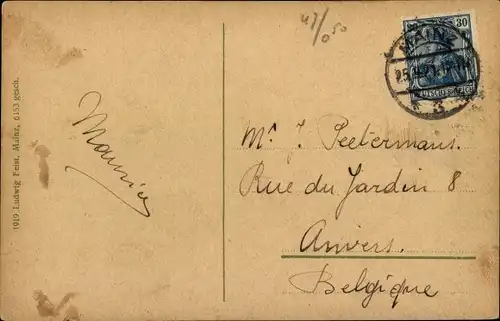 47/050
30
MAINZ
3
1919 Ludwig Feist, Mainz, 6153 gesch.
Maurice
Mr. J. Peetermans.
Rue du Jardin 8
Anvers.
Belgique